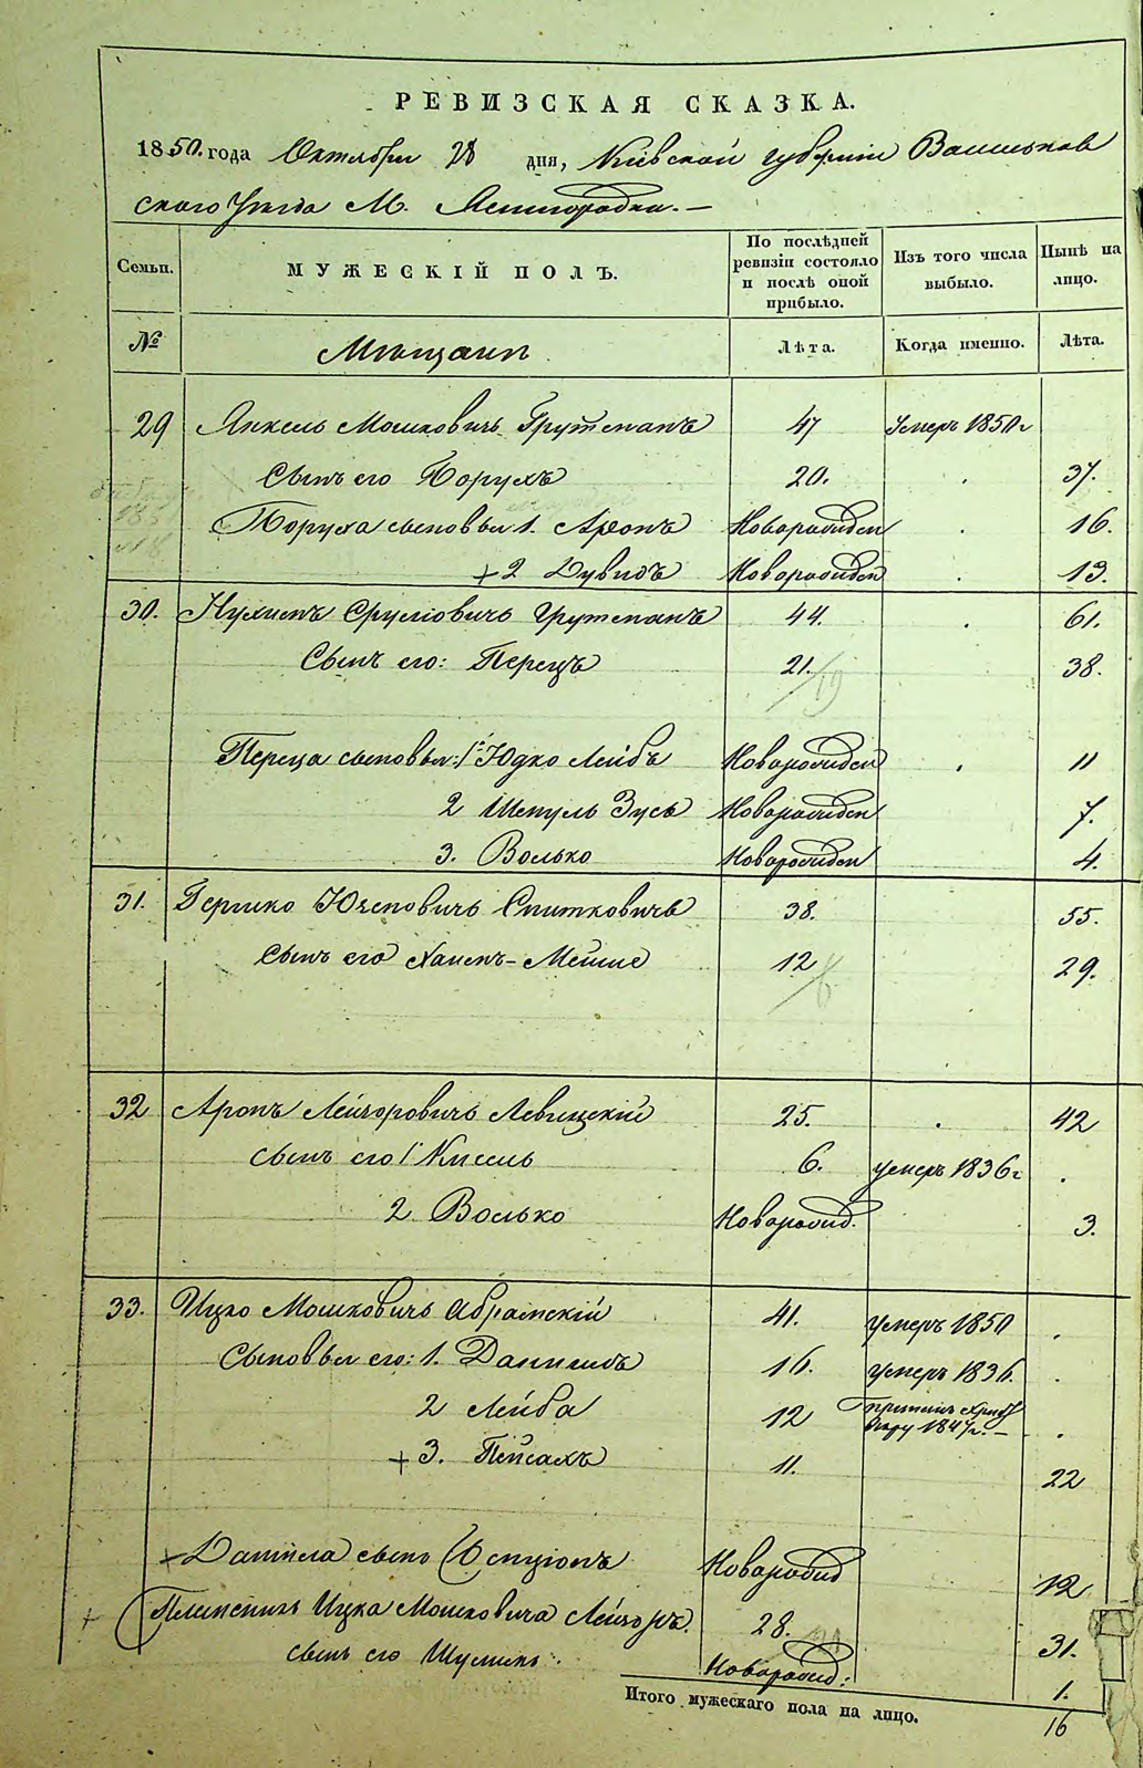 РЕВИЗСКАЯ СКАЗКА.
1850. года Октября 28 дня, Кіевской губерніи Васильков
скаго Уѣзда М. Ясногородки. —
Семьи. МУЖЕСКІЙ ПОЛЪ. По послѣдней ревизіи состояло и послѣ оной прибыло. Изъ того числа выбыло. Нынѣ на лицо.
№ Мѣщане Лѣта. Когда именно. Лѣта.
29 Янкель Мошковичъ Грутманъ 47 Умеръ 1850 г
Сынъ его Борухъ 20. 37.
Боруха сыновья 1. Аронъ Новорожден 16.
+2 Дувидъ Новорожден 13.
30. Нухимъ Сруліовичъ Грутманъ 44. 61.
Сынъ его: Перецъ 21. 38.
Переца сыновья: 1й Юдко Лейбъ Новорожден 11
2 Шмуль Зусь Новорожден 7.
3. Волько Новорожден 4.
31. Гершко Юзеповичъ Спитковичъ 38. 55.
Сынъ его Хаимъ-Мейше 12 29.
32 Аронъ Лейзоровичъ Левицкій 25. 42
сынъ его 1 Кисель 6. умеръ 1836 г
2 Волько Новорожд. 3.
33. Ицко Мошковичъ Абрамскій 41. умеръ 1850
Сыновья его: 1. Даниилъ 16. умеръ 1836.
2 Лейба 12 принялъ Христ
вѣру 1847 г. —
+ 3. Пейсахъ 11. 22
+ Даніила сынъ Бенціонъ Новорожд 12
+ Племеникъ Ицка Мошковича Лейзоръ. 28. 31.
сынъ его Шулимъ. Новорожд: 1.
Итого мужескаго пола на лицо. 16